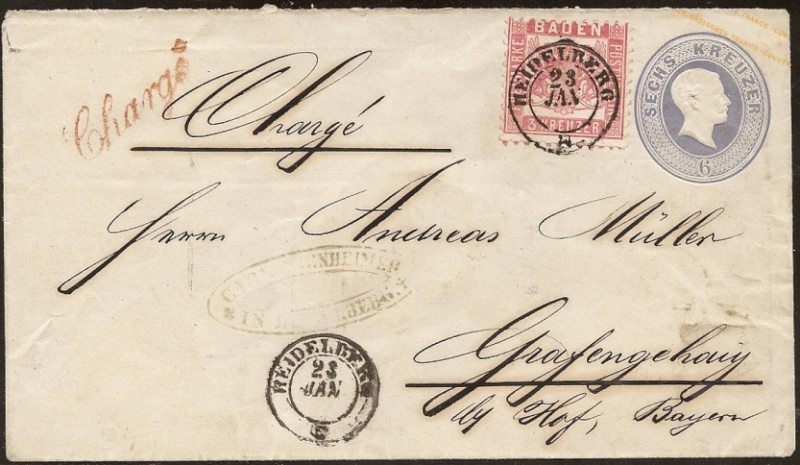 Chargé
Chargé
BADEN
3 KREUZER
HEIDELBERG
23
JAN
SECHS KREUZER
6
Herrn Andreas Müller
IN HEIDELBERG
HEIDELBERG
23
JAN
Grafengehaig
by Hof, Bayern